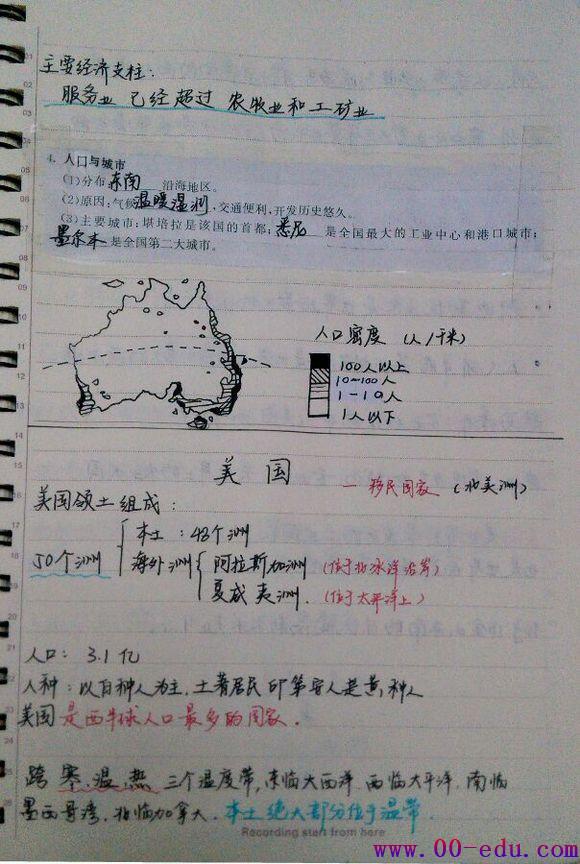 主要经济支柱:
服务业 已经超过 农牧业和工矿业
4. 人口与城市
(1)分布:东南 沿海地区。
(2)原因:气候温暖湿润,交通便利,开发历史悠久。
(3)主要城市:堪培拉是该国的首都;悉尼 是全国最大的工业中心和港口城市;
墨尔本是全国第二大城市。
人口密度 (人/千米)
100人以上
10-100人
1-10人
1人以下
美国 — 移民国家 (北美洲)
美国领土组成:
50个洲
本土:48个洲
海外洲
阿拉斯加洲 (位于北冰洋沿岸)
夏威夷洲. (位于太平洋上)
人口: 3.1亿
人种:以白种人为主.土著居民印第安人是黄种人
美国是西半球人口最多的国家.
跨 寒.温.热 三个温度带,东临大西洋 西临太平洋.南临
墨西哥湾.北临加拿大.本土绝大部分位于温带.
Recording start from here
www.00-edu.com